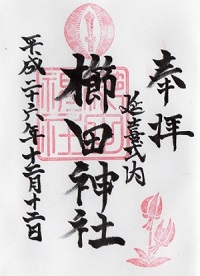 奉拝
延喜式内
櫛田神社
平成二十六年十二月十二日